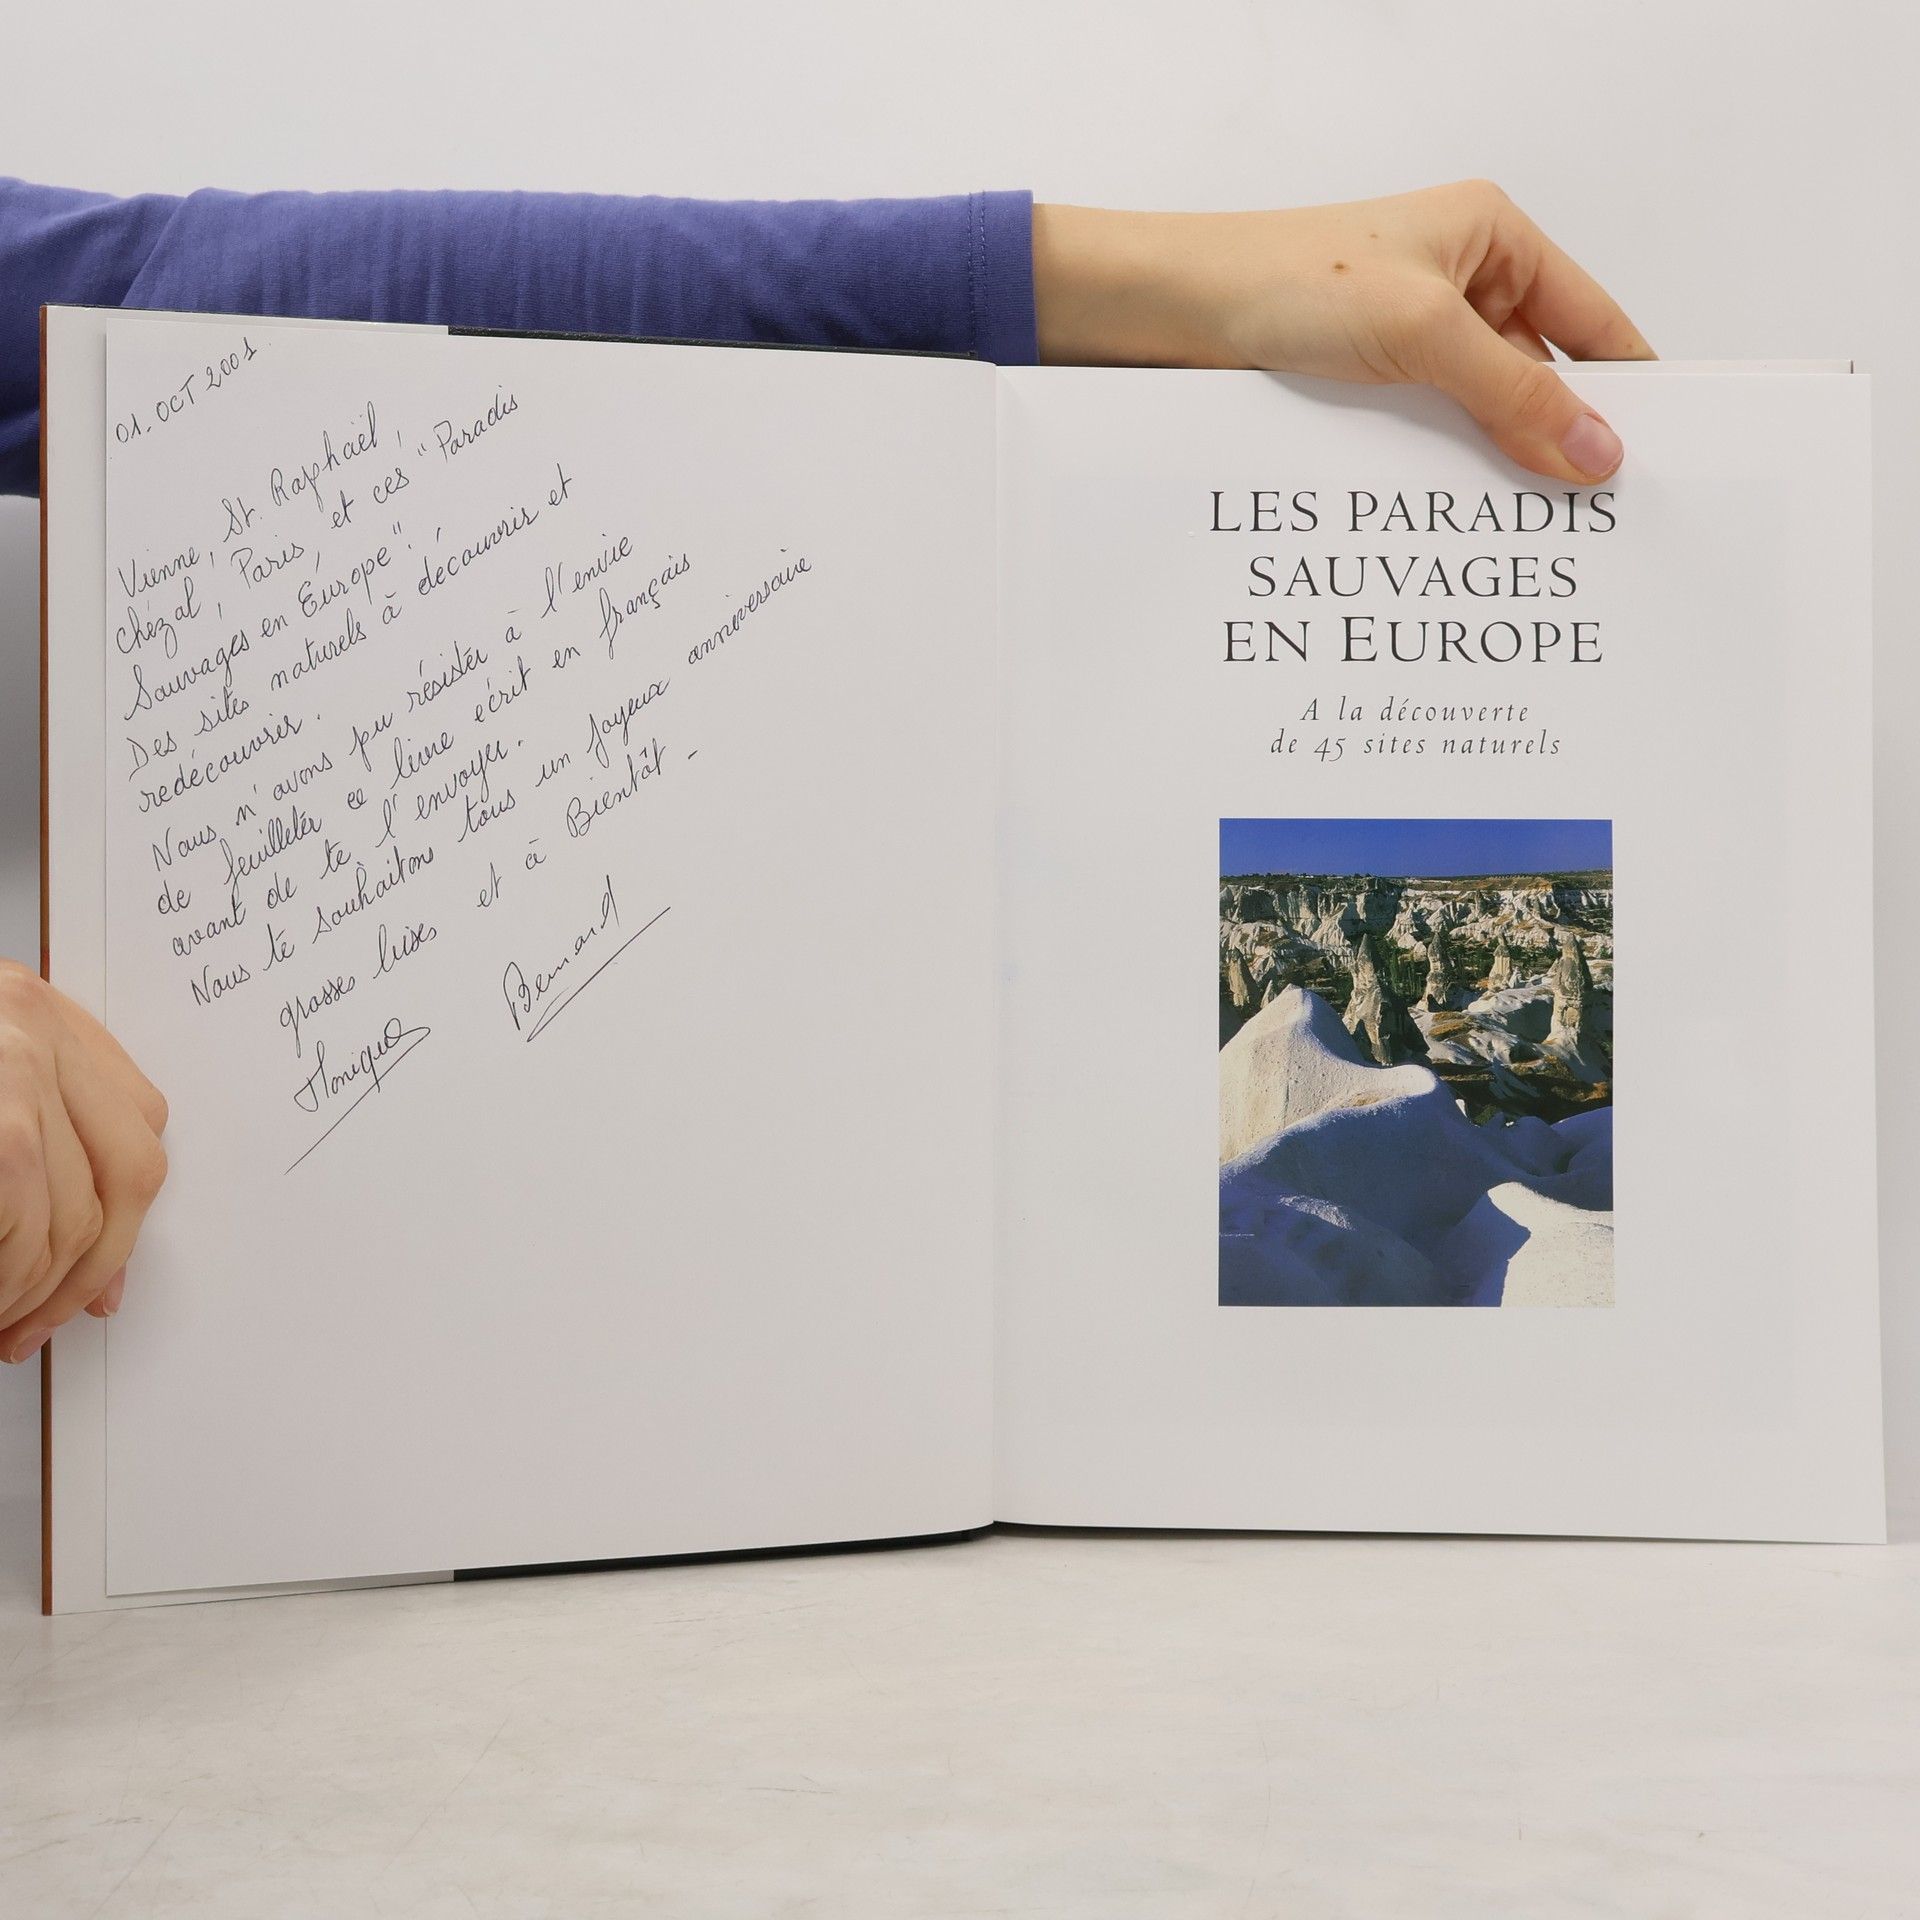 01. OCT 2001.
Vienne, St. Raphaël,
Chézal, Paris, et ces "Paradis
Sauvages en Europe".!
Des sites naturels à découvrir et
redécouvrir.
Nous n'avons pu résister à l'envie
de feuilleter ce livre écrit en français
avant de te l'envoyer.
Nous te souhaitons tous un joyeux anniversaire
grosses bises et à Bientôt -
Monique Bernard
LES PARADIS
SAUVAGES
EN EUROPE
A la découverte
de 45 sites naturels